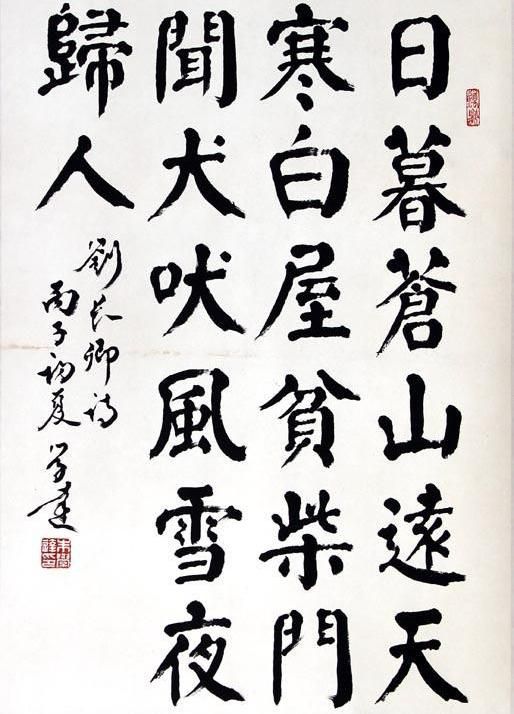 日暮蒼山遠天
寒白屋貧柴門
聞犬吠風雪夜
歸人
劉長卿詩
丙子初夏 學達